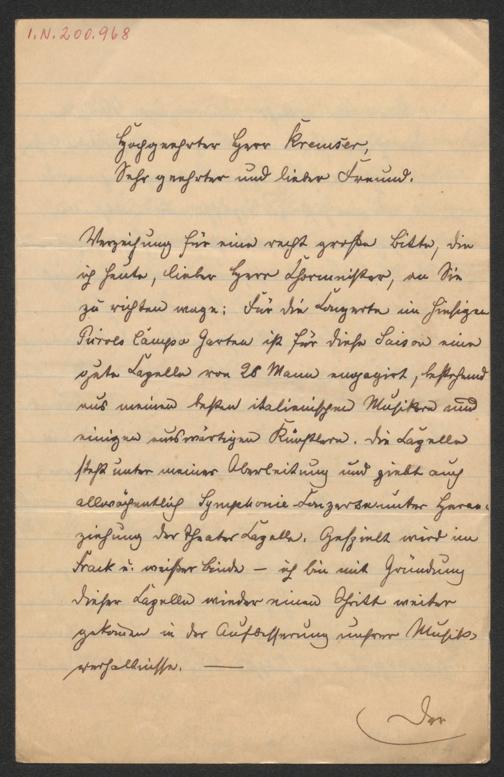 I.N. 200.968
Hochgeehrter Herr Kremser,
Sehr geehrter und lieber Freund.
Verzeihung für eine recht große Bitte, die
ich heute, lieber Herr Chormeister, an Sie
zu richten wage: Für die Conzerte im hiesigen
Campo Garten ist für diese Saison eine
gute Capelle von 28 Mann engagirt, bestehend
aus meinen besten italienischen Musikern und
einigen auswärtigen Künstlern. Die Capelle
steht unter meiner Oberleitung und giebt auch
allwöchentlich Symphonie-Conzerte unter Heran-
ziehung der Theater Capelle. Gespielt wird im
Frack u. weißer Binde – ich bin mit Gründung
dieser Capelle wieder einen Schritt weiter
gekomen in der Aufbesserung unsrer Musik-
verhältnisse. —
Der